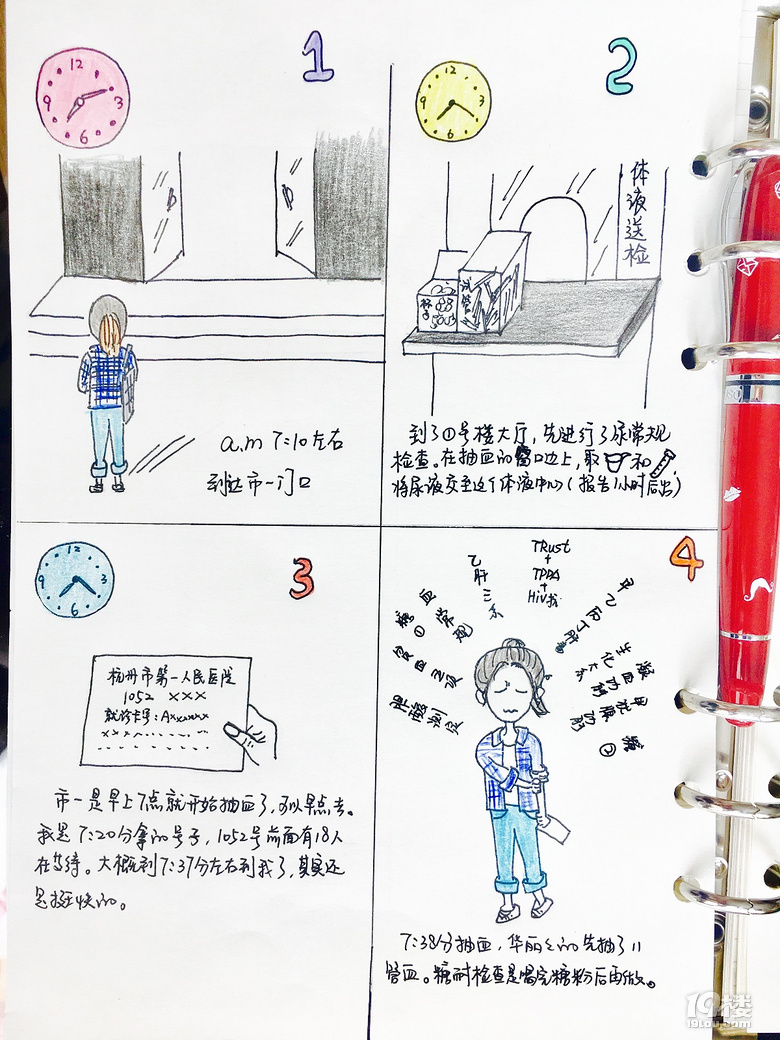 1
12
3
6
9
a.m 7:10左右
到达市一门口
2
12
3
6
9
体液送检
杯子
试管
到了①号楼大厅，先进行了尿常规
检查。在抽血的窗口边上，取 和
将尿液交至这个体液中心（报告1小时后出）
3
12
3
6
9
杭州市第一人民医院
1052 ×××
就诊卡号：A××××××
市一是早上7点就开始抽血了，可以早点去。
我是7:20分拿的号子，1052号前面有18人
在等待。大概到7:37分左右到我了，其实还
是挺快的。
4
糖①
血常规
乙肝三系
TRUST
+
TPPA
+
HIV抗
甲乙丙丁肝
生化大
糖②
7:38分抽血，华丽丽的先抽了11
管血。糖耐检查是喝完糖粉后再做。
19楼
19lou.com